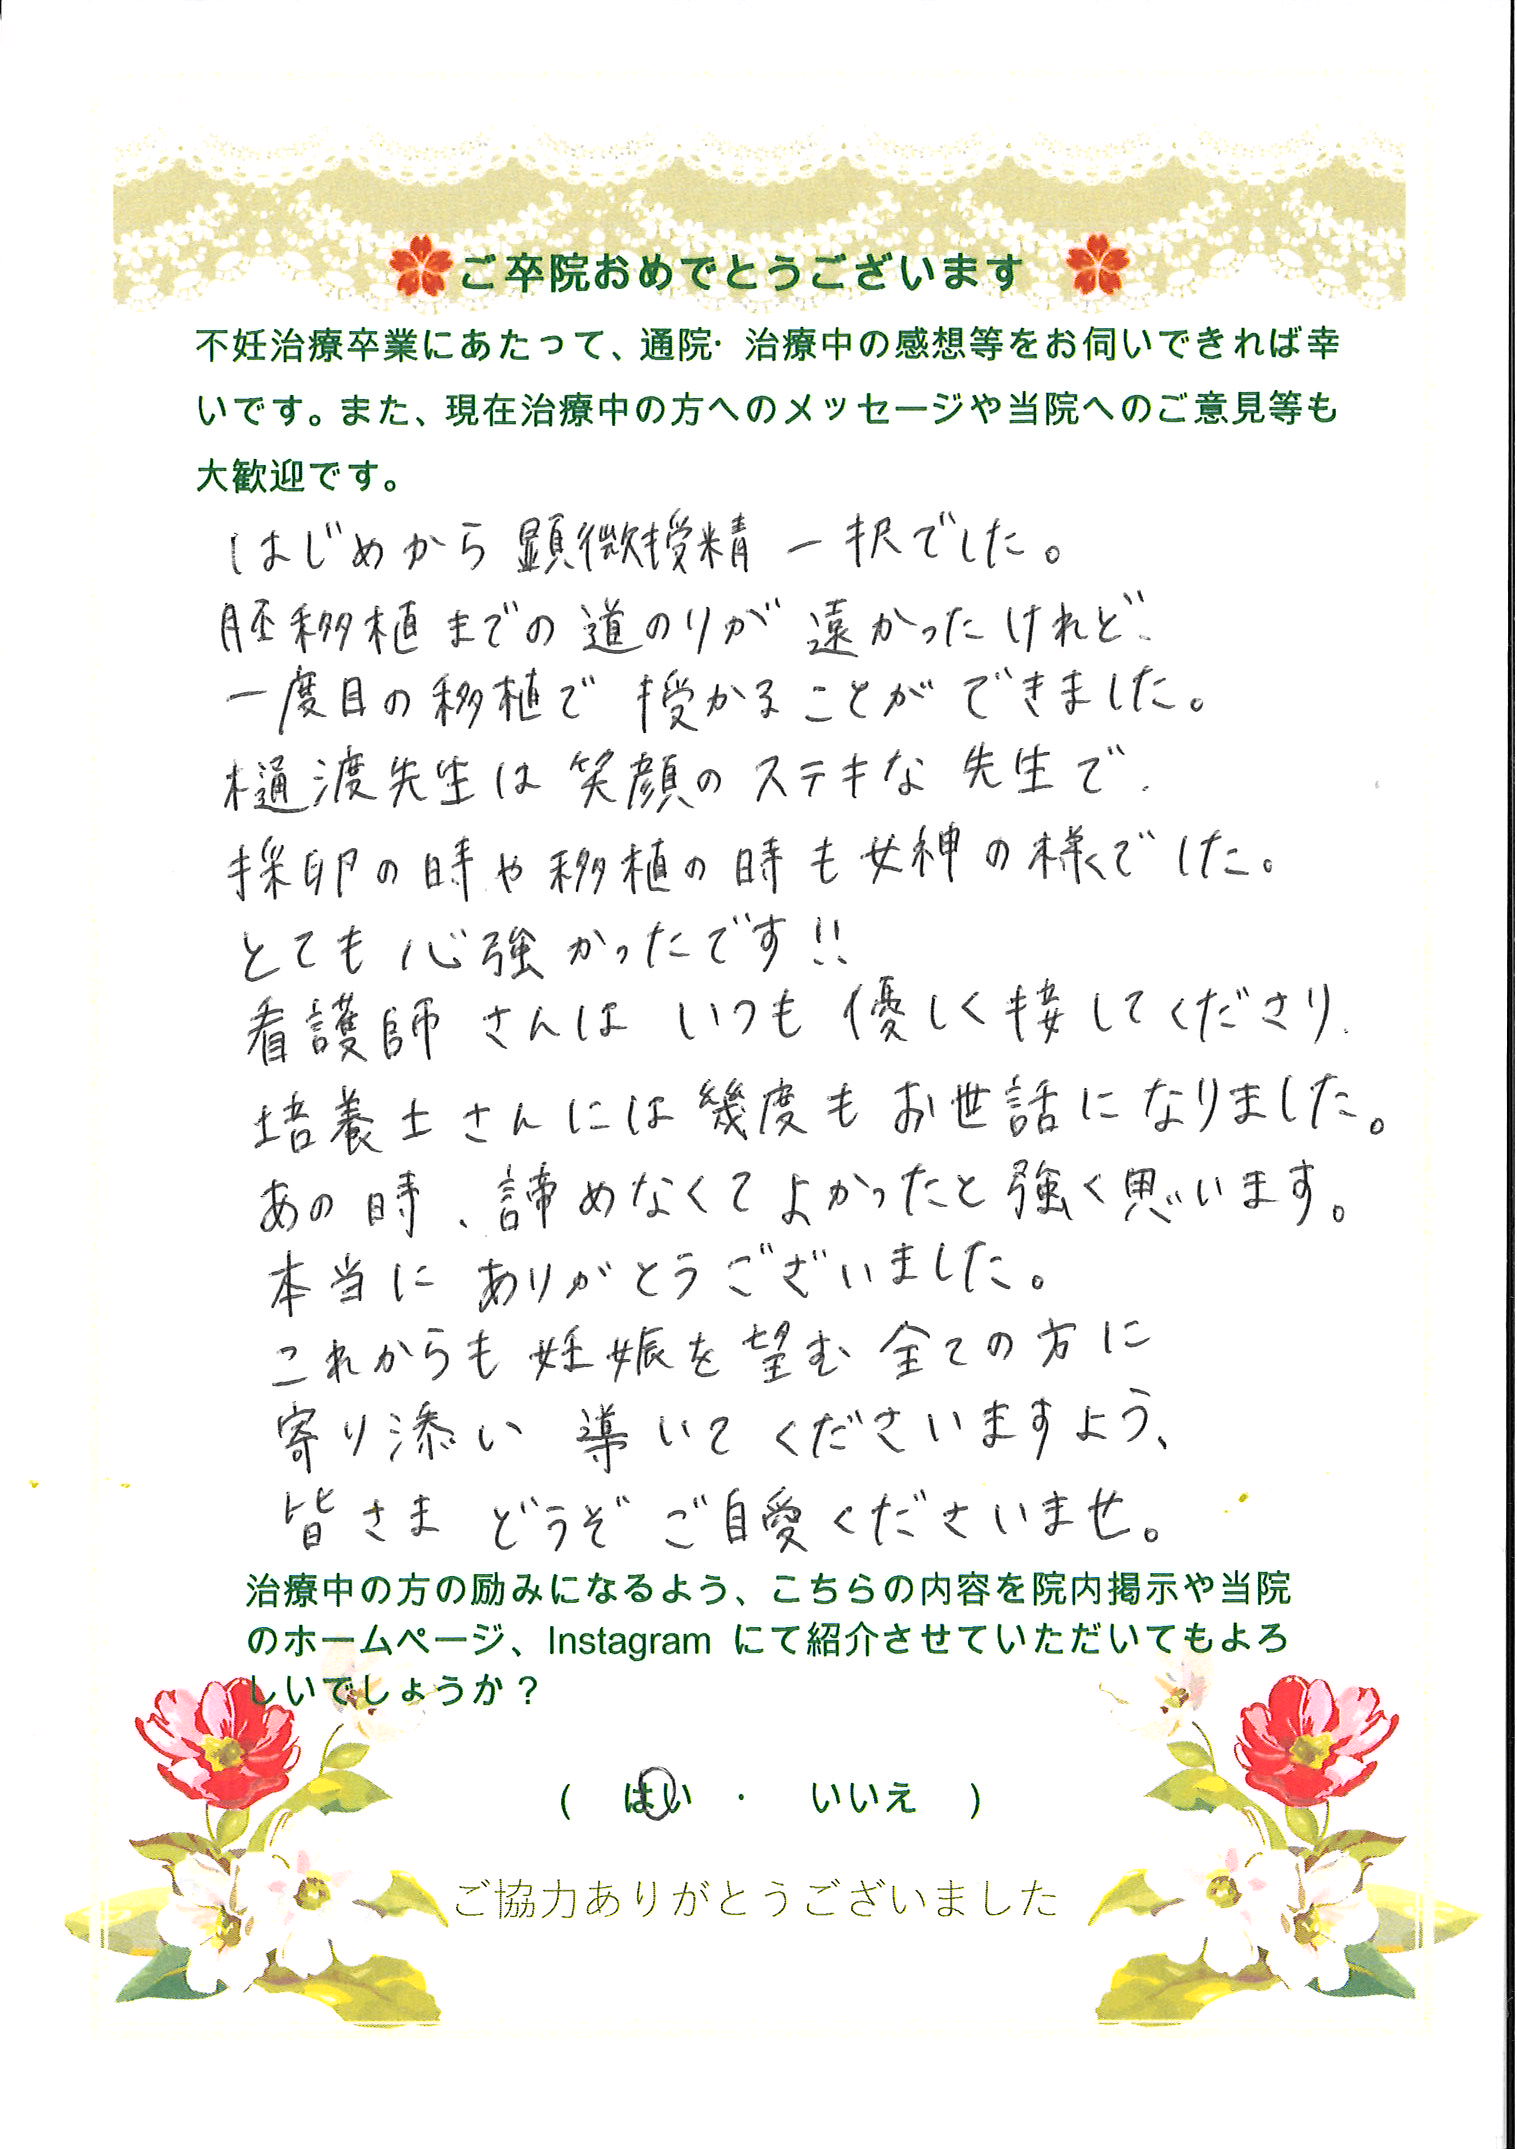 ご卒院おめでとうございます
不妊治療卒業にあたって、通院・治療中の感想等をお伺いできれば幸
いです。また、現在治療中の方へのメッセージや当院へのご意見等も
大歓迎です。
はじめから顕微授精一択でした。
胚移植までの道のりが遠かったけれど、
一度目の移植で授かることができました。
樋渡先生は笑顔のステキな先生で、
採卵の時や移植の時も女神の様でした。
とても心強かったです!!
看護師さんはいつも優しく接してくださり、
培養士さんには幾度もお世話になりました。
あの時、諦めなくてよかったと強く思います。
本当にありがとうございました。
これからも妊娠を望む全ての方に
寄り添い導いてくださいますよう、
皆さまどうぞご自愛くださいませ。
治療中の方の励みになるよう、こちらの内容を院内掲示や当院
のホームページ、Instagram にて紹介させていただいてもよろ
しいでしょうか？
( はい ・ いいえ )
ご協力ありがとうございました